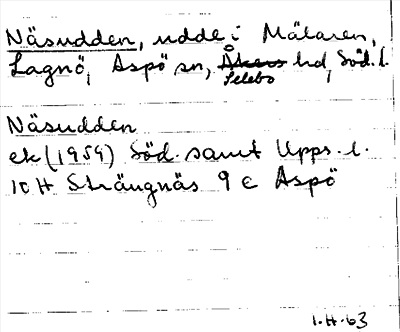 Näsudden, udde i Mälaren,
Lagnö, Aspö sn, Åkers hd, Söd. l.
Selebo
Näsudden
ek (1959) Söd. samt Upps. l.
10 H Strängnäs 9 c Aspö
1.H.63